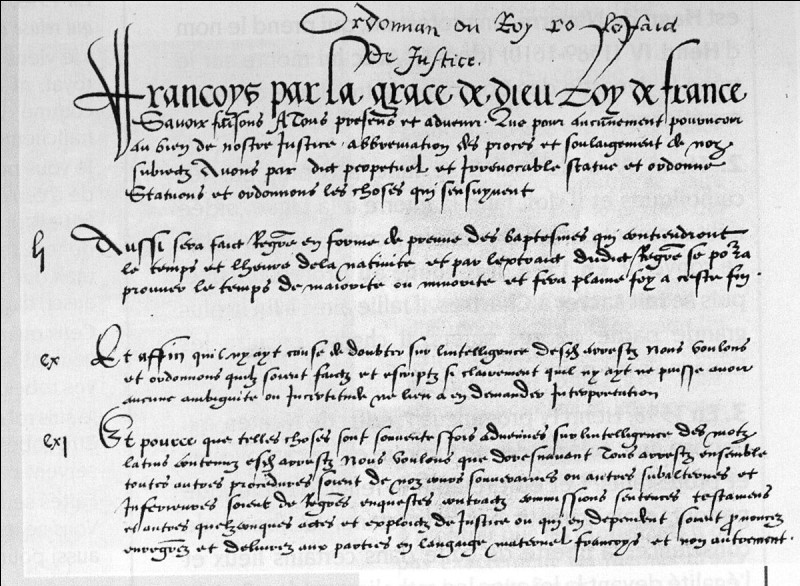 Ordonnan du Roy
De Justice.
Francoys par la grace de dieu Roy de france
Savoir faisons A Tous presens et advenir Que pour aucunement pourveoir
au bien de nostre Justice abbreviation des proces et soulaigement de noz
subiectz Avons par dict perpetuel et Irrevocable statue et ordonne
Statuons et ordonnons les choses qui sensuyvent
Aussi sera faict Registre en forme de preuve des baptesmes qui contiendront
le temps et lheure de la nativite et par lextraict dudict Registre se pourra
prouver le temps de maiorite ou minorite et fera plaine foy a ceste fin.
cx Et affin quil ny ayt cause de doubter sur lintelligence desdictz arrestz Nous voulons
et ordonnons quilz soient faictz et escriptz si clairement quil ny ayt ne puisse avoir
aucune ambiguite ou Incertitude ne lieu a en demander Interpretation
cxj Et pource que telles choses sont souventesfois advenues sur lintelligence des motz
latins contenuz esdictz arrestz Nous voulons que doresnavant Tous arrestz ensemble
toutes autres procedures soient de noz cours souveraines ou autres subalternes et
Inferieures soient de Registres enquestes contractz commissions sentences testamens
et autres quelzconques actes et exploictz de Justice ou qui en dependent soient prononcez
enregistrez et delivrez aux parties en langaige maternel francoys et non autrement.